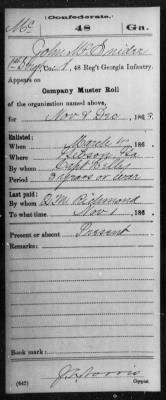 (Confederate.)
Mc 48 Ga.
John Mc
Co. , 48 Reg't Georgia Infantry.
Appears on
Company Muster Roll
of the organization named above,
for Nov & Dec, 186 .
Enlisted:
When March 4, 186 .
Where Ga
By whom Capt Kelly
Period 3 years or war
Last paid:
By whom Q.M. Richmond
To what time Nov 1, 186 .
Present or absent Present
Remarks:
(642) Copyist.